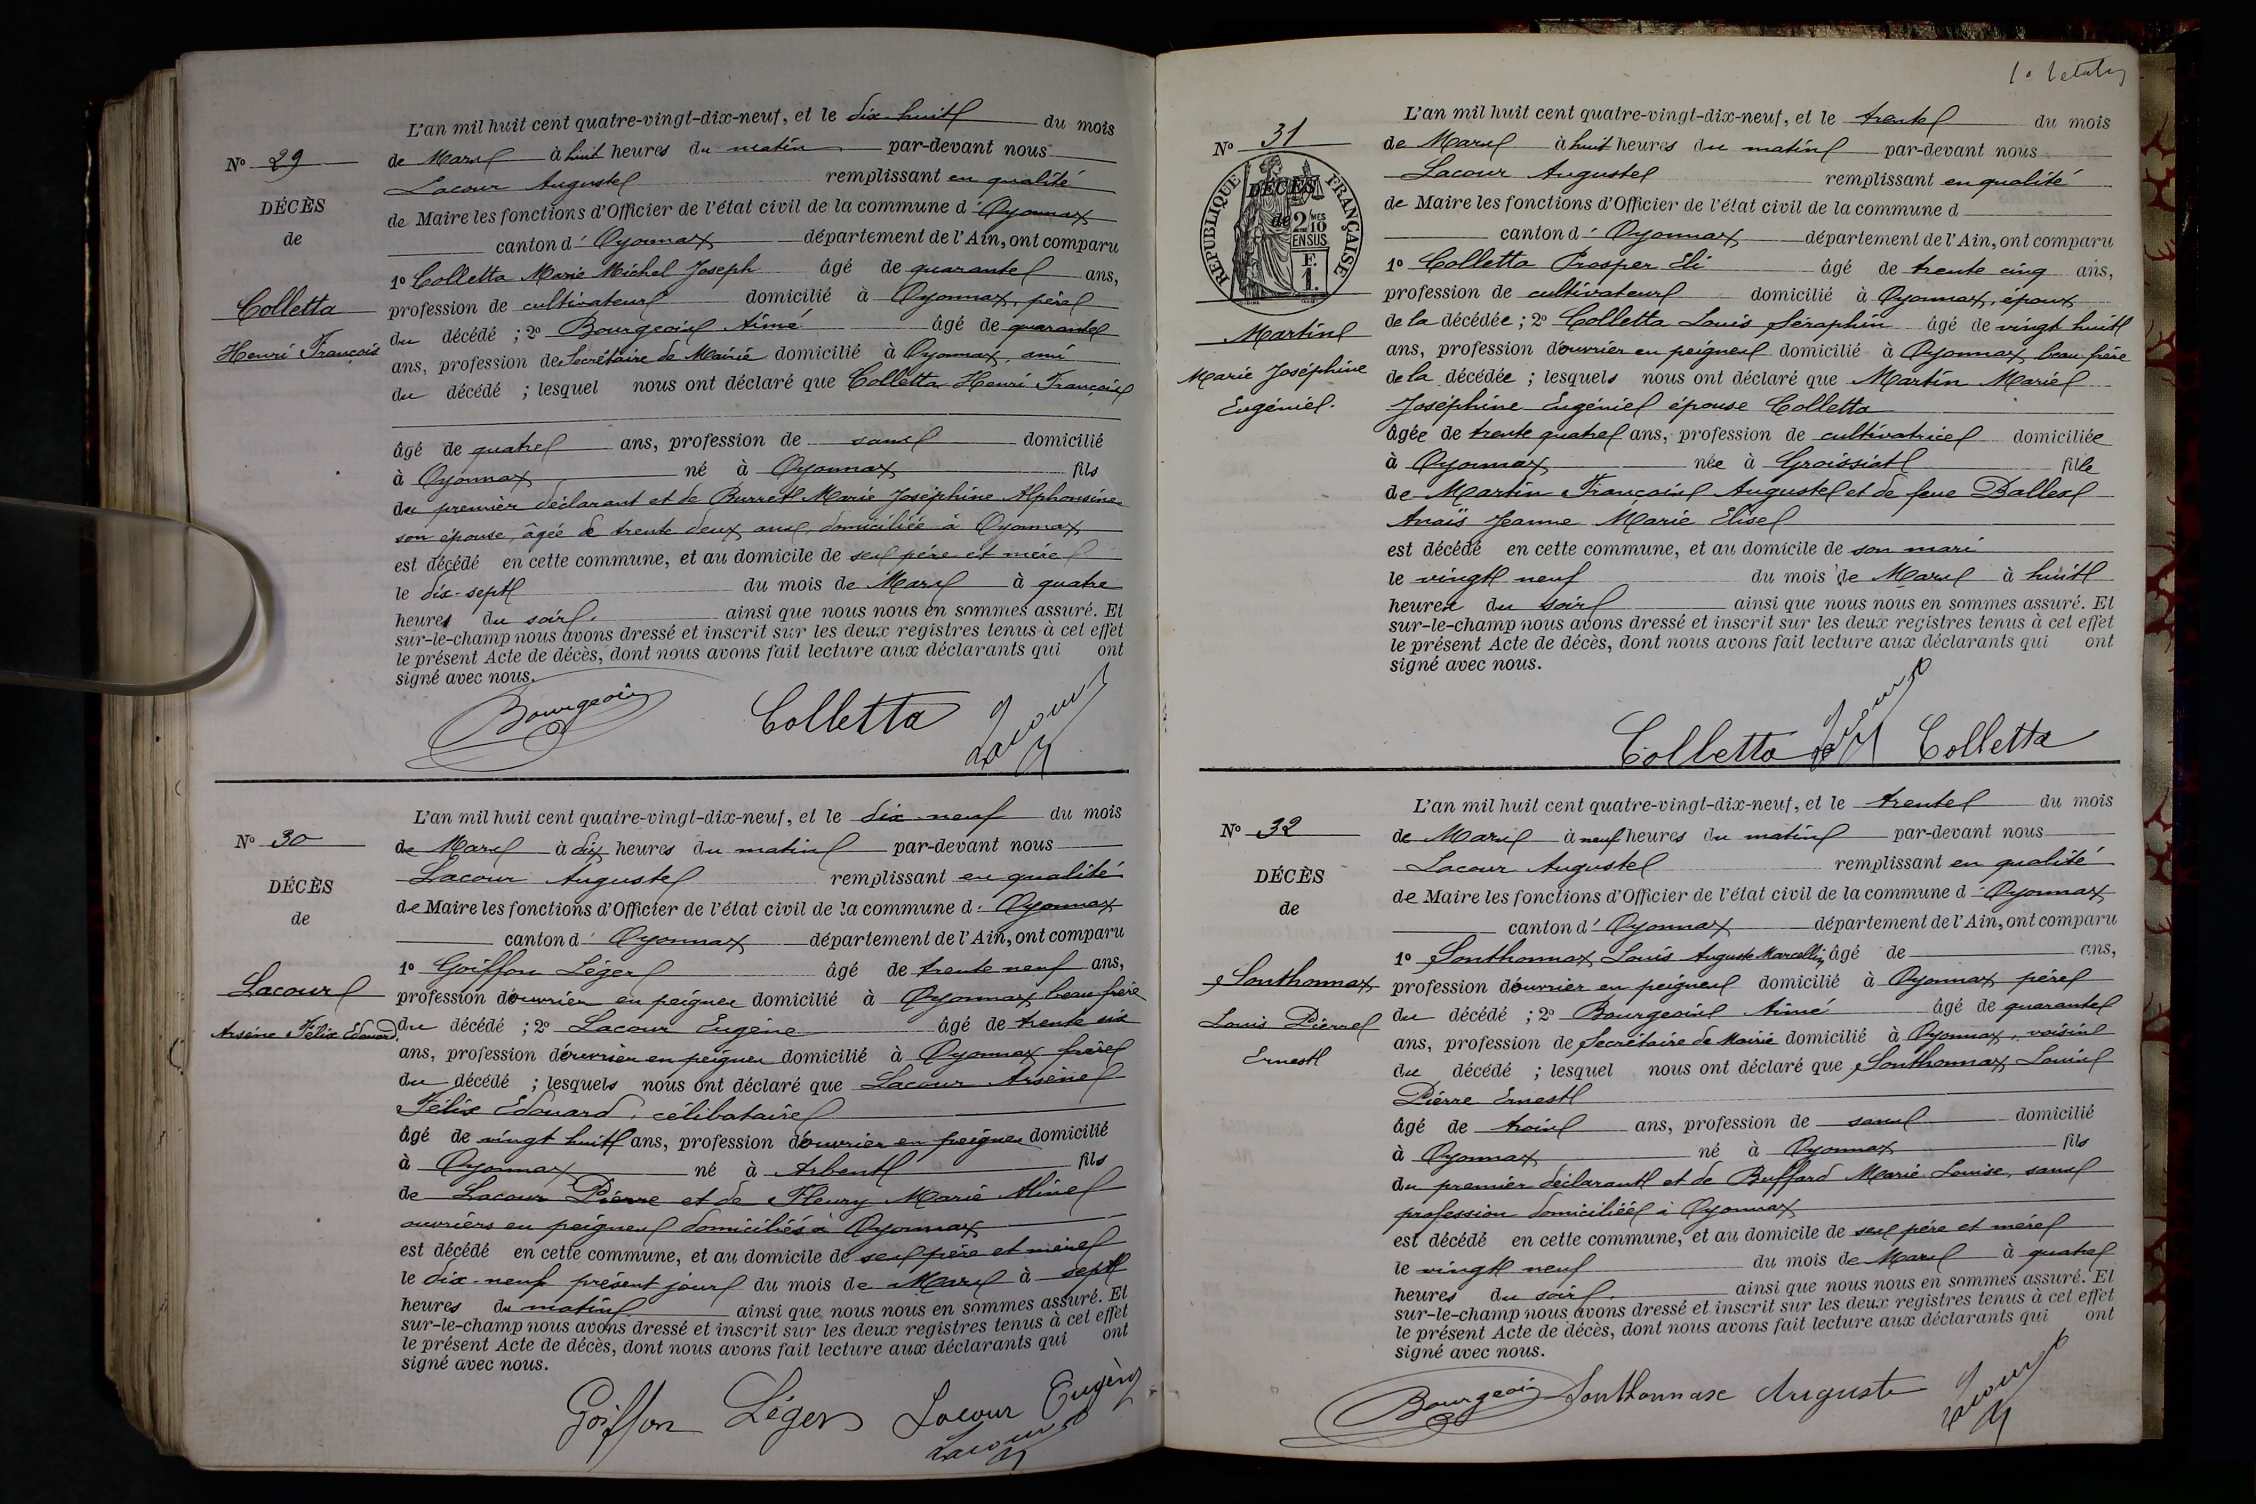 Nº 29
DÉCÈS
de
Colletta
Henri François
L'an mil huit cent quatre-vingt-dix-neuf, et le dix-huit du mois
de Mars à huit heures du matin par-devant nous
Lacour Auguste remplissant en qualité
de Maire les fonctions d'Officier de l'état civil de la commune d'Oyonnax
canton d'Oyonnax département de l'Ain, ont comparu
1º Colletta Marie Michel Joseph âgé de quarante ans,
profession de cultivateur domicilié à Oyonnax, père
du décédé ; 2º Bourgeois Aimé âgé de quarante
ans, profession de Secrétaire de Mairie domicilié à Oyonnax, ami
du décédé ; lesquel nous ont déclaré que Colletta Henri François
âgé de quatre ans, profession de sans domicilié
à Oyonnax né à Oyonnax fils
du premier déclarant et de Burret Marie Joséphine Alphonsine
son épouse, âgée de trente deux ans, domiciliée à Oyonnax
est décédé en cette commune, et au domicile de ses père et mère
le dix-sept du mois de Mars à quatre
heures du soir. ainsi que nous nous en sommes assuré. Et
sur-le-champ nous avons dressé et inscrit sur les deux registres tenus à cet effet
le présent Acte de décès, dont nous avons fait lecture aux déclarants qui ont
signé avec nous.
Bourgeois Colletta Lacour
Nº 30
DÉCÈS
de
Lacour
Arsène Félix Edouard.
L'an mil huit cent quatre-vingt-dix-neuf, et le dix-neuf du mois
de Mars à dix heures du matin par-devant nous
Lacour Auguste remplissant en qualité
de Maire les fonctions d'Officier de l'état civil de la commune d'Oyonnax
canton d'Oyonnax département de l'Ain, ont comparu
1º Goiffon Léger âgé de trente neuf ans,
profession d'ouvrier en peignes domicilié à Oyonnax, beau-frère
du décédé ; 2º Lacour Eugène âgé de trente six
ans, profession d'ouvrier en peignes domicilié à Oyonnax frère
du décédé ; lesquels nous ont déclaré que Lacour Arsène
Félix Edouard, célibataire
âgé de vingt huit ans, profession d'ouvrier en peignes domicilié
à Oyonnax né à Arbent fils
de Lacour Pierre et de Fleury Marie Aline
ouvriers en peignes domiciliés à Oyonnax
est décédé en cette commune, et au domicile de ses père et mère
le dix-neuf présent jour du mois de Mars à sept
heures du matin ainsi que nous nous en sommes assuré. Et
sur-le-champ nous avons dressé et inscrit sur les deux registres tenus à cet effet
le présent Acte de décès, dont nous avons fait lecture aux déclarants qui ont
signé avec nous.
Goiffon Léger Lacour Eugène
Lacour
Nº 31
RÉPUBLIQUE FRANÇAISE
DÉCÈS
de
2 MES 10
EN SUS
F.
1.
Martin
Marie Joséphine
Eugénie.
L'an mil huit cent quatre-vingt-dix-neuf, et le trente du mois
de Mars à huit heures du matin par-devant nous
Lacour Auguste remplissant en qualité
de Maire les fonctions d'Officier de l'état civil de la commune d
canton d'Oyonnax département de l'Ain, ont comparu
1º Colletta Prosper Eli âgé de trente cinq ans,
profession de cultivateur domicilié à Oyonnax, époux
de la décédée ; 2º Colletta Louis Séraphin âgé de vingt huit
ans, profession d'ouvrier en peignes domicilié à Oyonnax beau-frère
de la décédée ; lesquels nous ont déclaré que Martin Marie
Joséphine Eugénie épouse Colletta
âgée de trente quatre ans, profession de cultivatrice domiciliée
à Oyonnax née à Groissiat fille
de Martin François Auguste et de feue Dalles
Anaïs Jeanne Marie Elise
est décédé en cette commune, et au domicile de son mari
le vingt neuf du mois de Mars à huit
heures du soir ainsi que nous nous en sommes assuré. Et
sur-le-champ nous avons dressé et inscrit sur les deux registres tenus à cet effet
le présent Acte de décès, dont nous avons fait lecture aux déclarants qui ont
signé avec nous.
Colletta Lacour Colletta
Nº 32
DÉCÈS
de
Sonthonnax
Louis Pierre
Ernest
L'an mil huit cent quatre-vingt-dix-neuf, et le trente du mois
de Mars à neuf heures du matin par-devant nous
Lacour Auguste remplissant en qualité
de Maire les fonctions d'Officier de l'état civil de la commune d'Oyonnax
canton d'Oyonnax département de l'Ain, ont comparu
1º Sonthonnax Louis Auguste Marcellin âgé de ans,
profession d'ouvrier en peignes domicilié à Oyonnax père
du décédé ; 2º Bourgeois Aimé âgé de quarante
ans, profession de Secrétaire de Mairie domicilié à Oyonnax, voisin
du décédé ; lesquel nous ont déclaré que Sonthonnax Louis
Pierre Ernest
âgé de trois ans, profession de sans domicilié
à Oyonnax né à Oyonnax fils
du premier déclarant et de Buffard Marie Louise, sans
profession domiciliée à Oyonnax
est décédé en cette commune, et au domicile de ses père et mère
le vingt neuf du mois de Mars à quatre
heures du soir. ainsi que nous nous en sommes assuré. Et
sur-le-champ nous avons dressé et inscrit sur les deux registres tenus à cet effet
le présent Acte de décès, dont nous avons fait lecture aux déclarants qui ont
signé avec nous.
Bourgeois Sonthonnax Auguste Lacour